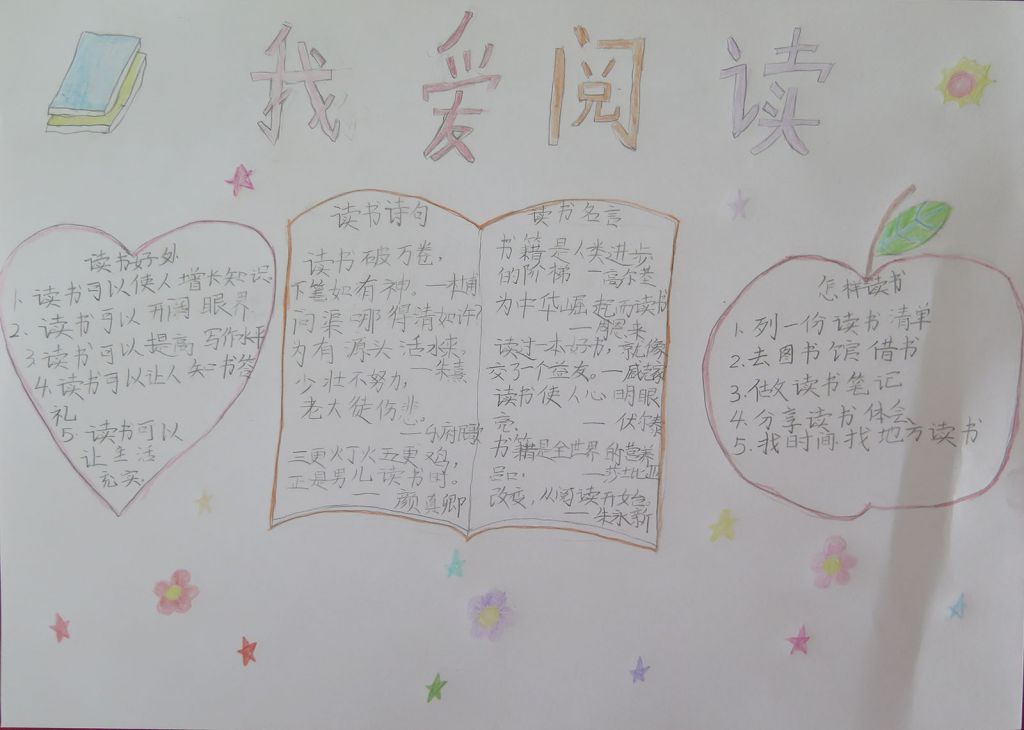 我爱阅读
读书好处
1. 读书可以使人增长知识
2. 读书可以开阔眼界
3. 读书可以提高写作水平
4. 读书可以让人知书答
礼
5. 读书可以
让生活
充实.
读书诗句
读书破万卷,
下笔如有神。—杜甫
问渠哪得清如许?
为有源头活水来,
—朱熹
少壮不努力,
老大徒伤悲。
—乐府歌
三更灯火五更鸡,
正是男儿读书时。
— 颜真卿
读书名言
书籍是人类进步
的阶梯 —高尔基
为中华崛起而读书
—周恩来
读过一本好书,就像
交了一个益友。—臧克家
读书使人心明眼
亮. — 伏尔泰
书籍是全世界的营养
品. —莎士比亚
改变,从阅读开始。
—朱永新
怎样读书
1. 列一份读书清单
2. 去图书馆借书
3. 做读书笔记
4. 分享读书体会
5. 找时间找地方读书